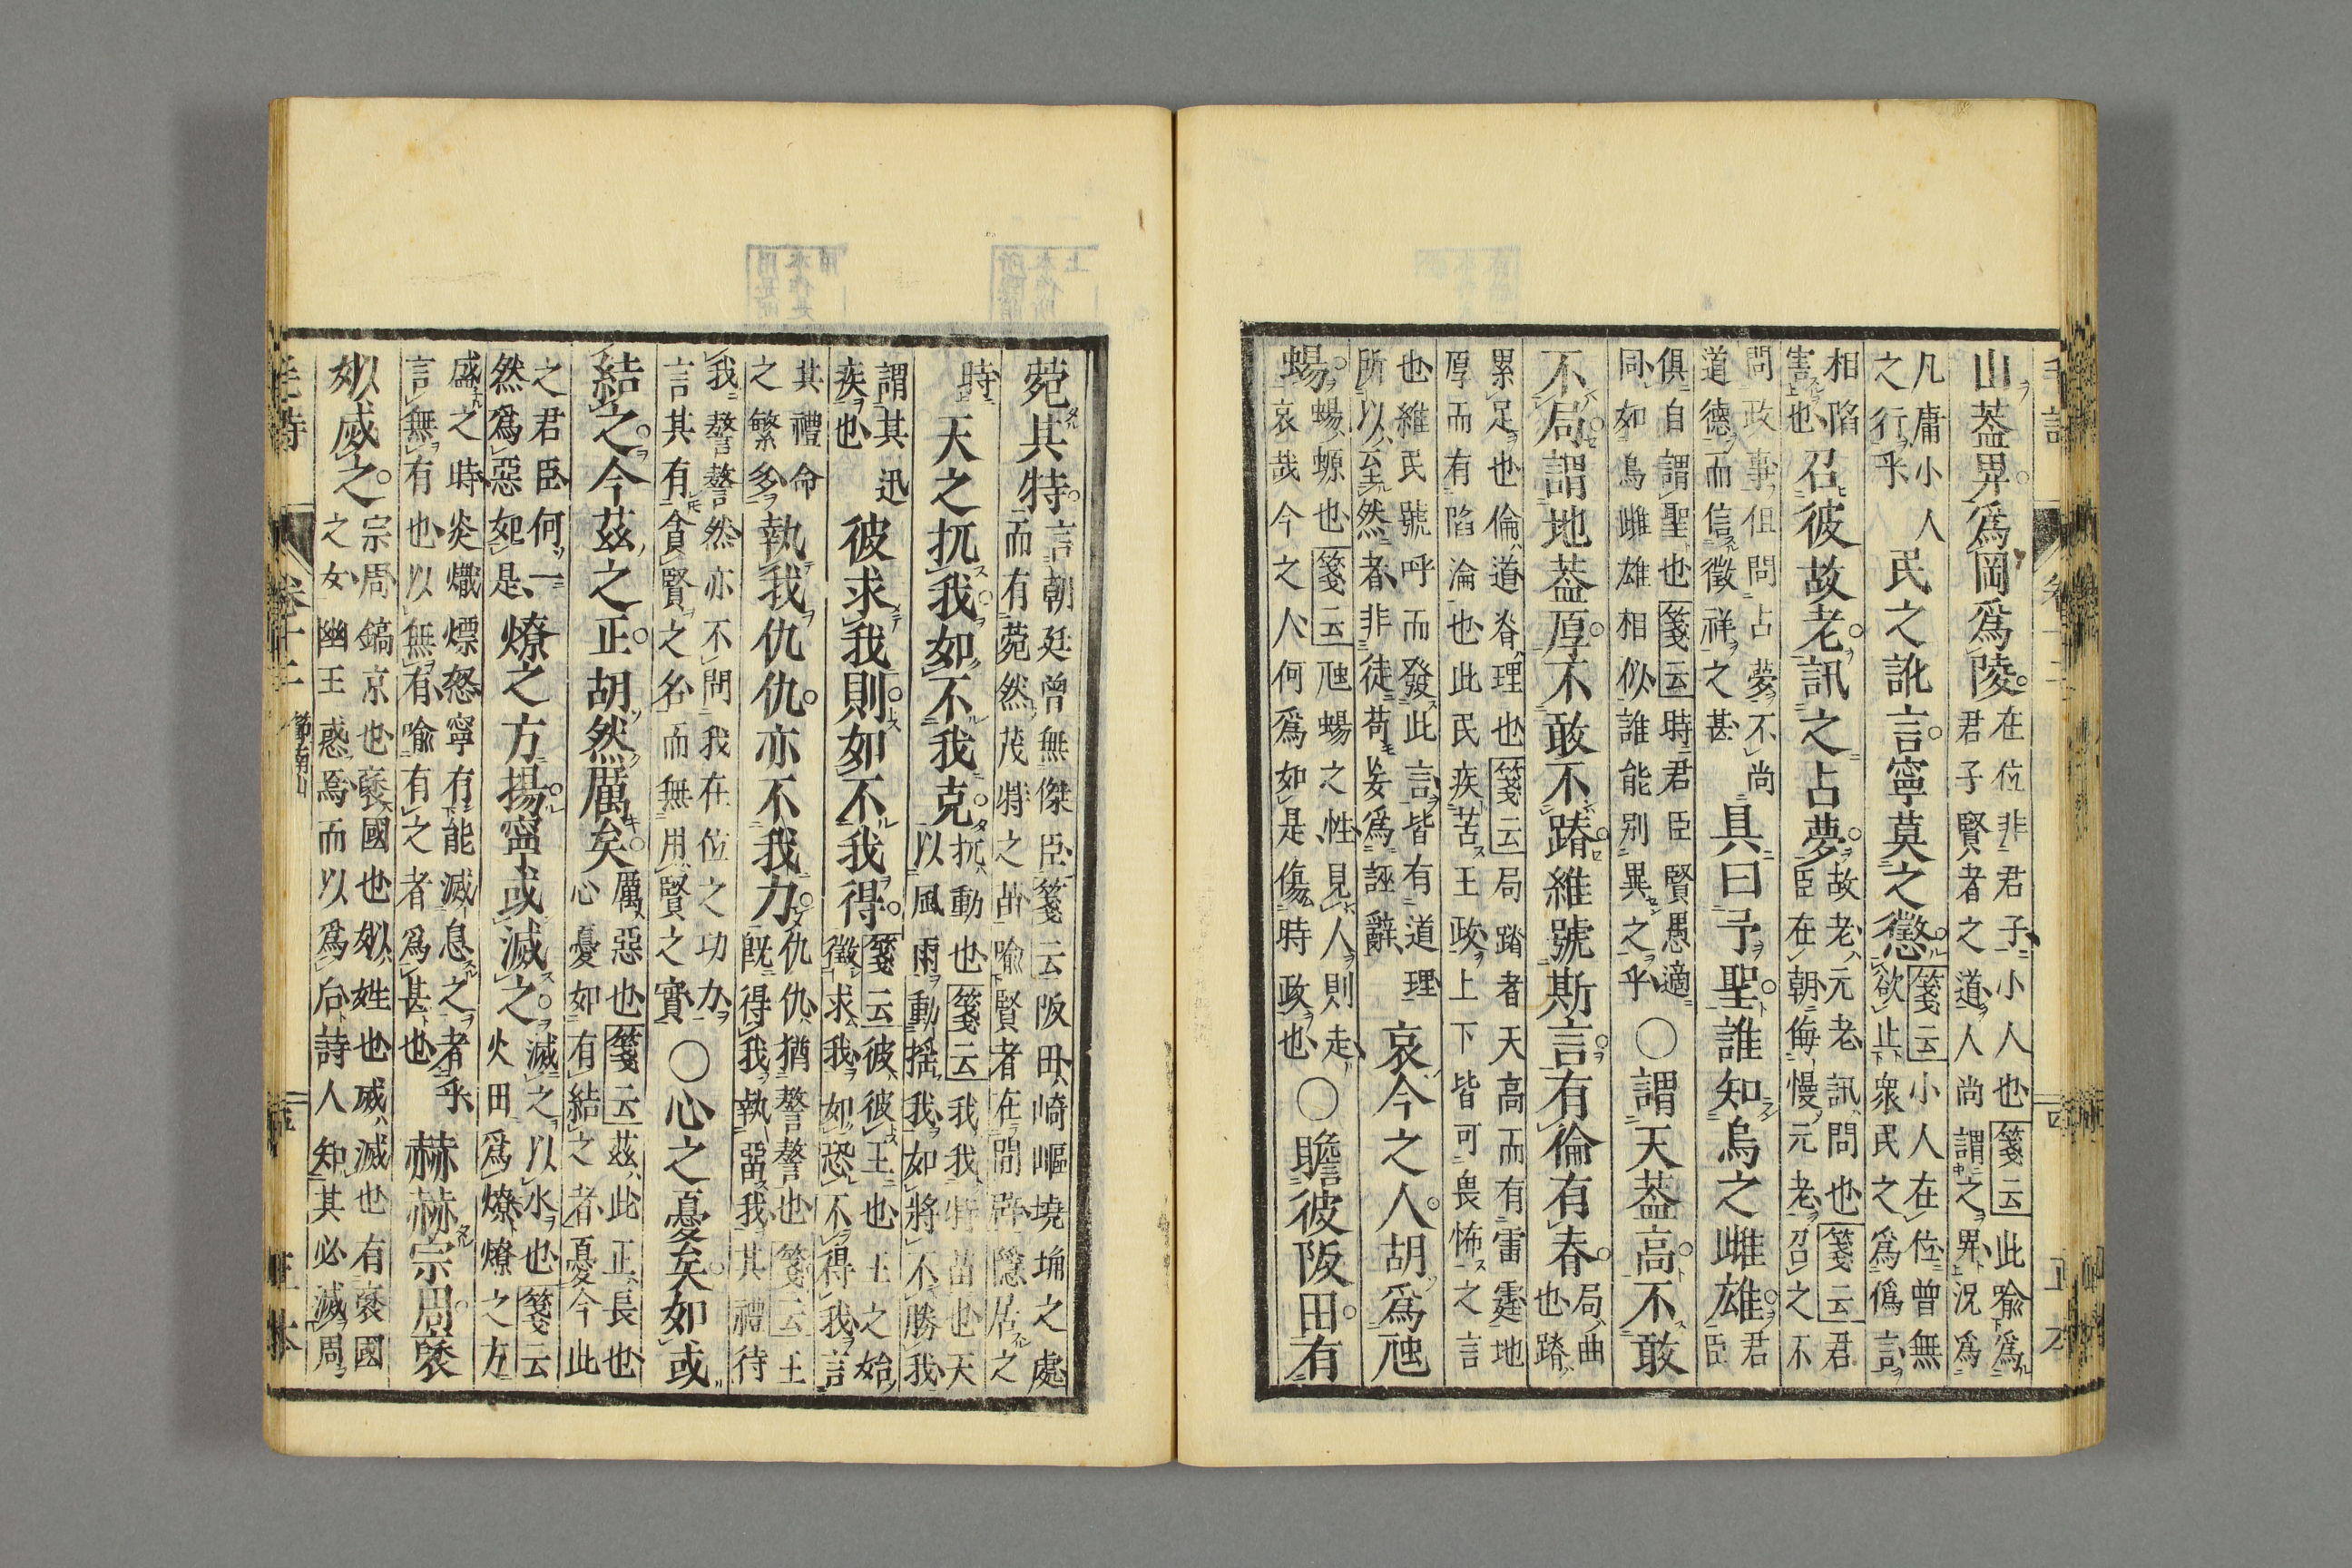 山葢卑爲岡爲陵在位非君子小人也箋云此喩爲君子賢者之道人尚謂之卑況爲
凡庸小人之行乎民之訛言寧莫之懲箋云小人在位曾無欲止衆民之爲僞言
相陷害也召彼故老訊之占夢故老元老訊問也箋云君臣在朝侮慢元老召之不
問政事但問占夢不尚道德而信徵祥之甚具曰予聖誰知烏之雌雄君臣
俱自謂聖也箋云時君臣賢愚適同如烏雌雄相似誰能別異之乎○謂天葢高不敢
不局謂地葢厚不敢不蹐維號斯言有倫有脊局曲也蹐
累足也倫道脊理也箋云局蹐者天高而有雷霆地厚而有陷淪也此民疾苦王政上下皆可畏怖之言
也維民號呼而發此言皆有道理所以至然者非徒苟妄爲誣辭哀今之人胡爲虺
蜴蜴螈也箋云虺蜴之性見人則走哀哉今之人何爲如是傷時政也○瞻彼阪田有
菀其特言朝廷曾無傑臣箋云阪田崎嶇墝埆之處而有菀然茂特之苗喩賢者在閒辟隱居之
時天之扤我如不我克扤動也箋云我我特苗也天以風雨動搖我如將不勝我
謂其迅疾也彼求我則如不我得箋云彼彼王也王之始徵求我如恐不得我言
其禮命之繁多執我仇仇亦不我力仇仇猶謷謷也箋云王既得我執留我其禮待
我謷謷然亦不問我在位之功力言其有貪賢之名而無用賢之實○心之憂矣如或
結之今茲之正胡然厲矣厲惡也箋云茲此正長也心憂如有結之者憂今此
之君臣何一然爲惡如是燎之方揚寧或滅之滅之以水也箋云火田爲燎燎之方
盛之時炎熾熛怒寧有能滅息之者言無有也以無有喩有之者爲甚也者乎赫赫宗周襃
姒烕之宗周鎬京也襃國也姒姓也烕滅也有襃國之女幽王惑焉而以爲后詩人知其必滅周
毛詩 卷十二 節南山